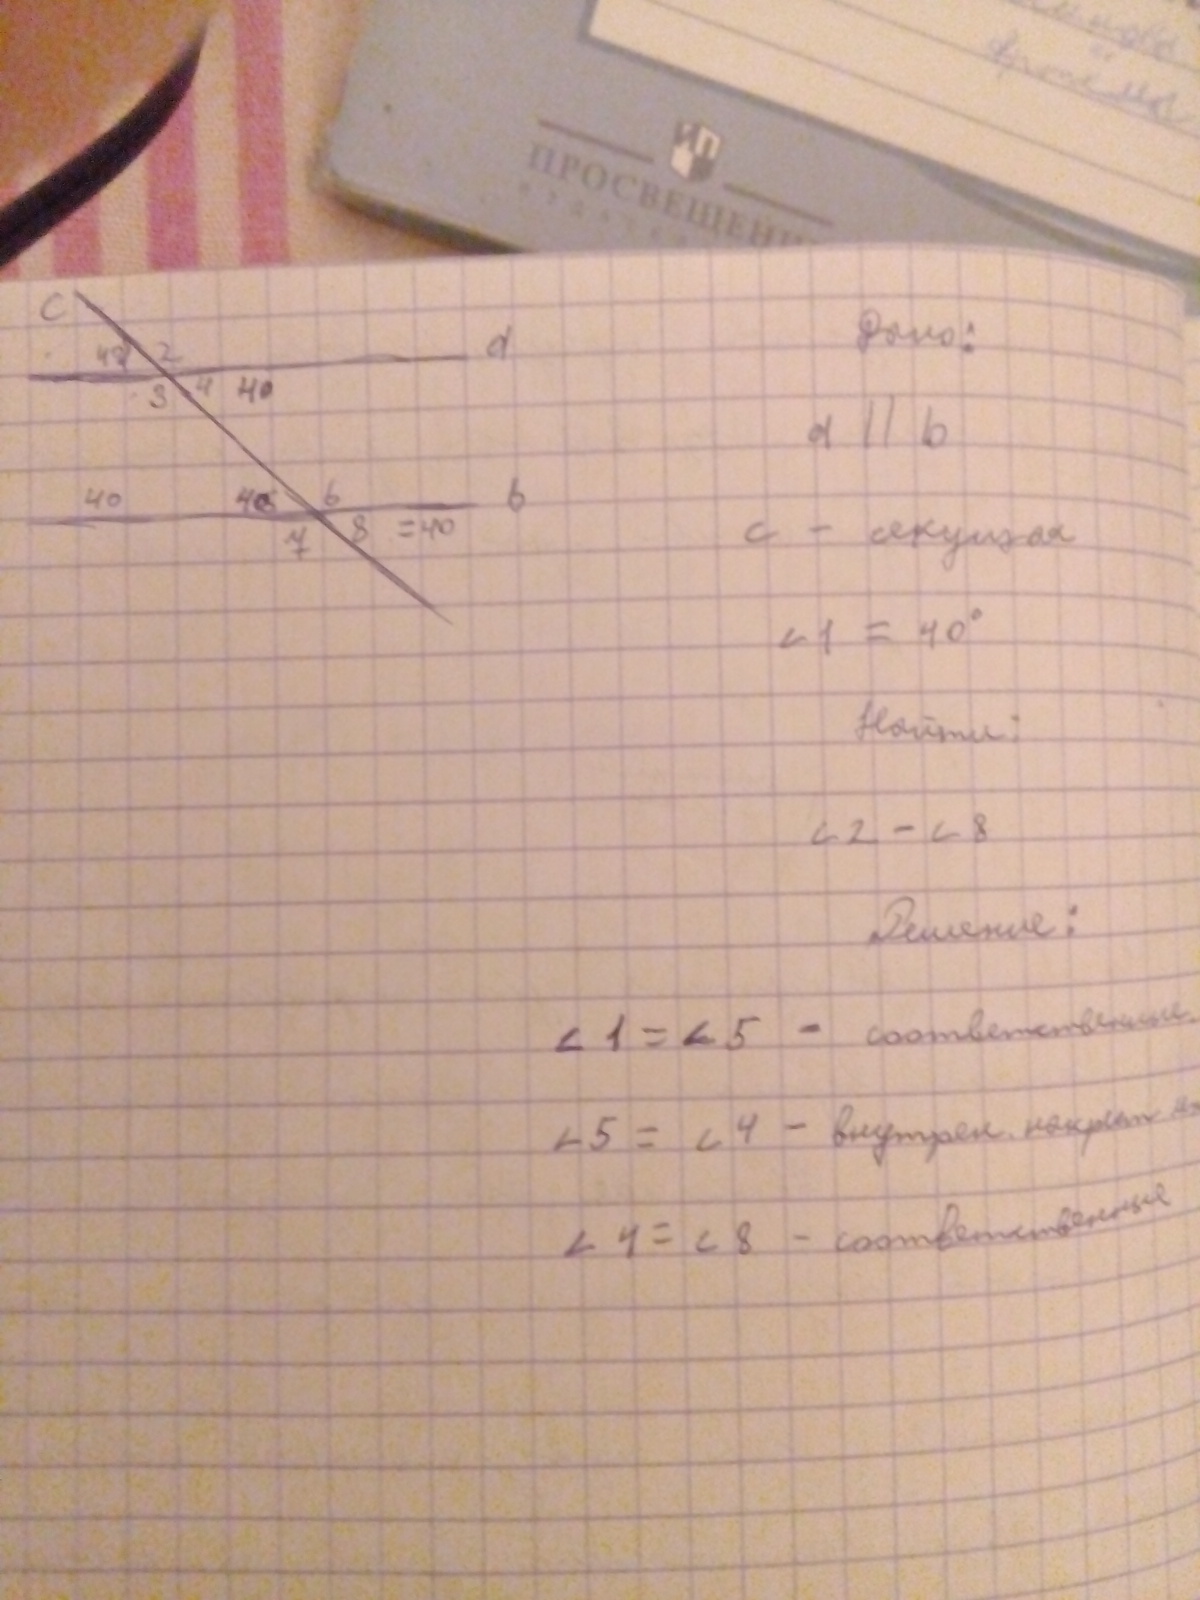 ИП
ПРОСВЕЩЕНИ
C
2
d
3 4 40
40
6
b
7 8 =40
Дано:
d || b
c - секущая
∠1 = 40°
Найти:
∠2 - ∠8
Решение:
∠1 = ∠5 - соответственные
∠5 = ∠4 - внутрен. накрест
∠4 = ∠8 - соответственные